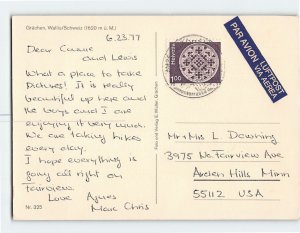 Grächen, Wallis/Schweiz (1620 m ü. M.)
6.23.77
Dear Connie
and Lewis
What a place to take
pictures! It is really
beautiful up here and
the boys and I are
enjoying it very much.
We are taking hikes
every day.
I hope everything is
going all right on
Fairview.
Love Agnes
Marc Chris
Nr. 025
Foto und Verlag
Grächen
Helvetia
100
PAR AVION
LUFTPOST
VIA AEREA
Mr + Mrs L Downing
3975 No. Fairview Ave
Arden Hills Minn
55112 USA